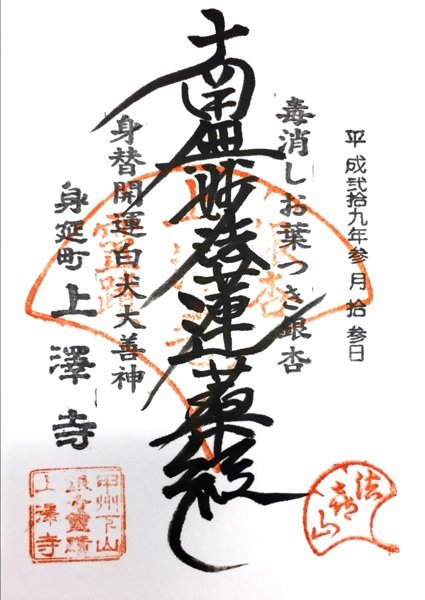 平成弐拾九年参月拾参日
毒消しお葉つき銀杏
南無妙法蓮華経
身替開運白犬大善神
身延町 上澤寺
法喜山
甲州下山
上澤寺